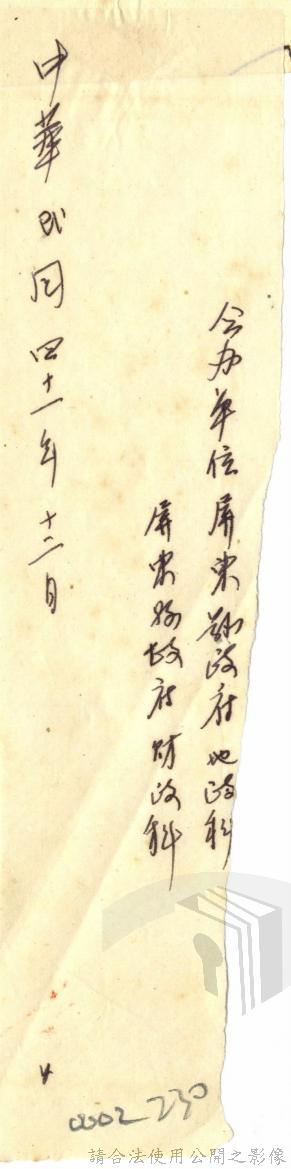 会办单位屏東縣政府地政科
屏東縣政府財政科
中華民国四十一年十二月
0002230
請合法使用公開之影像